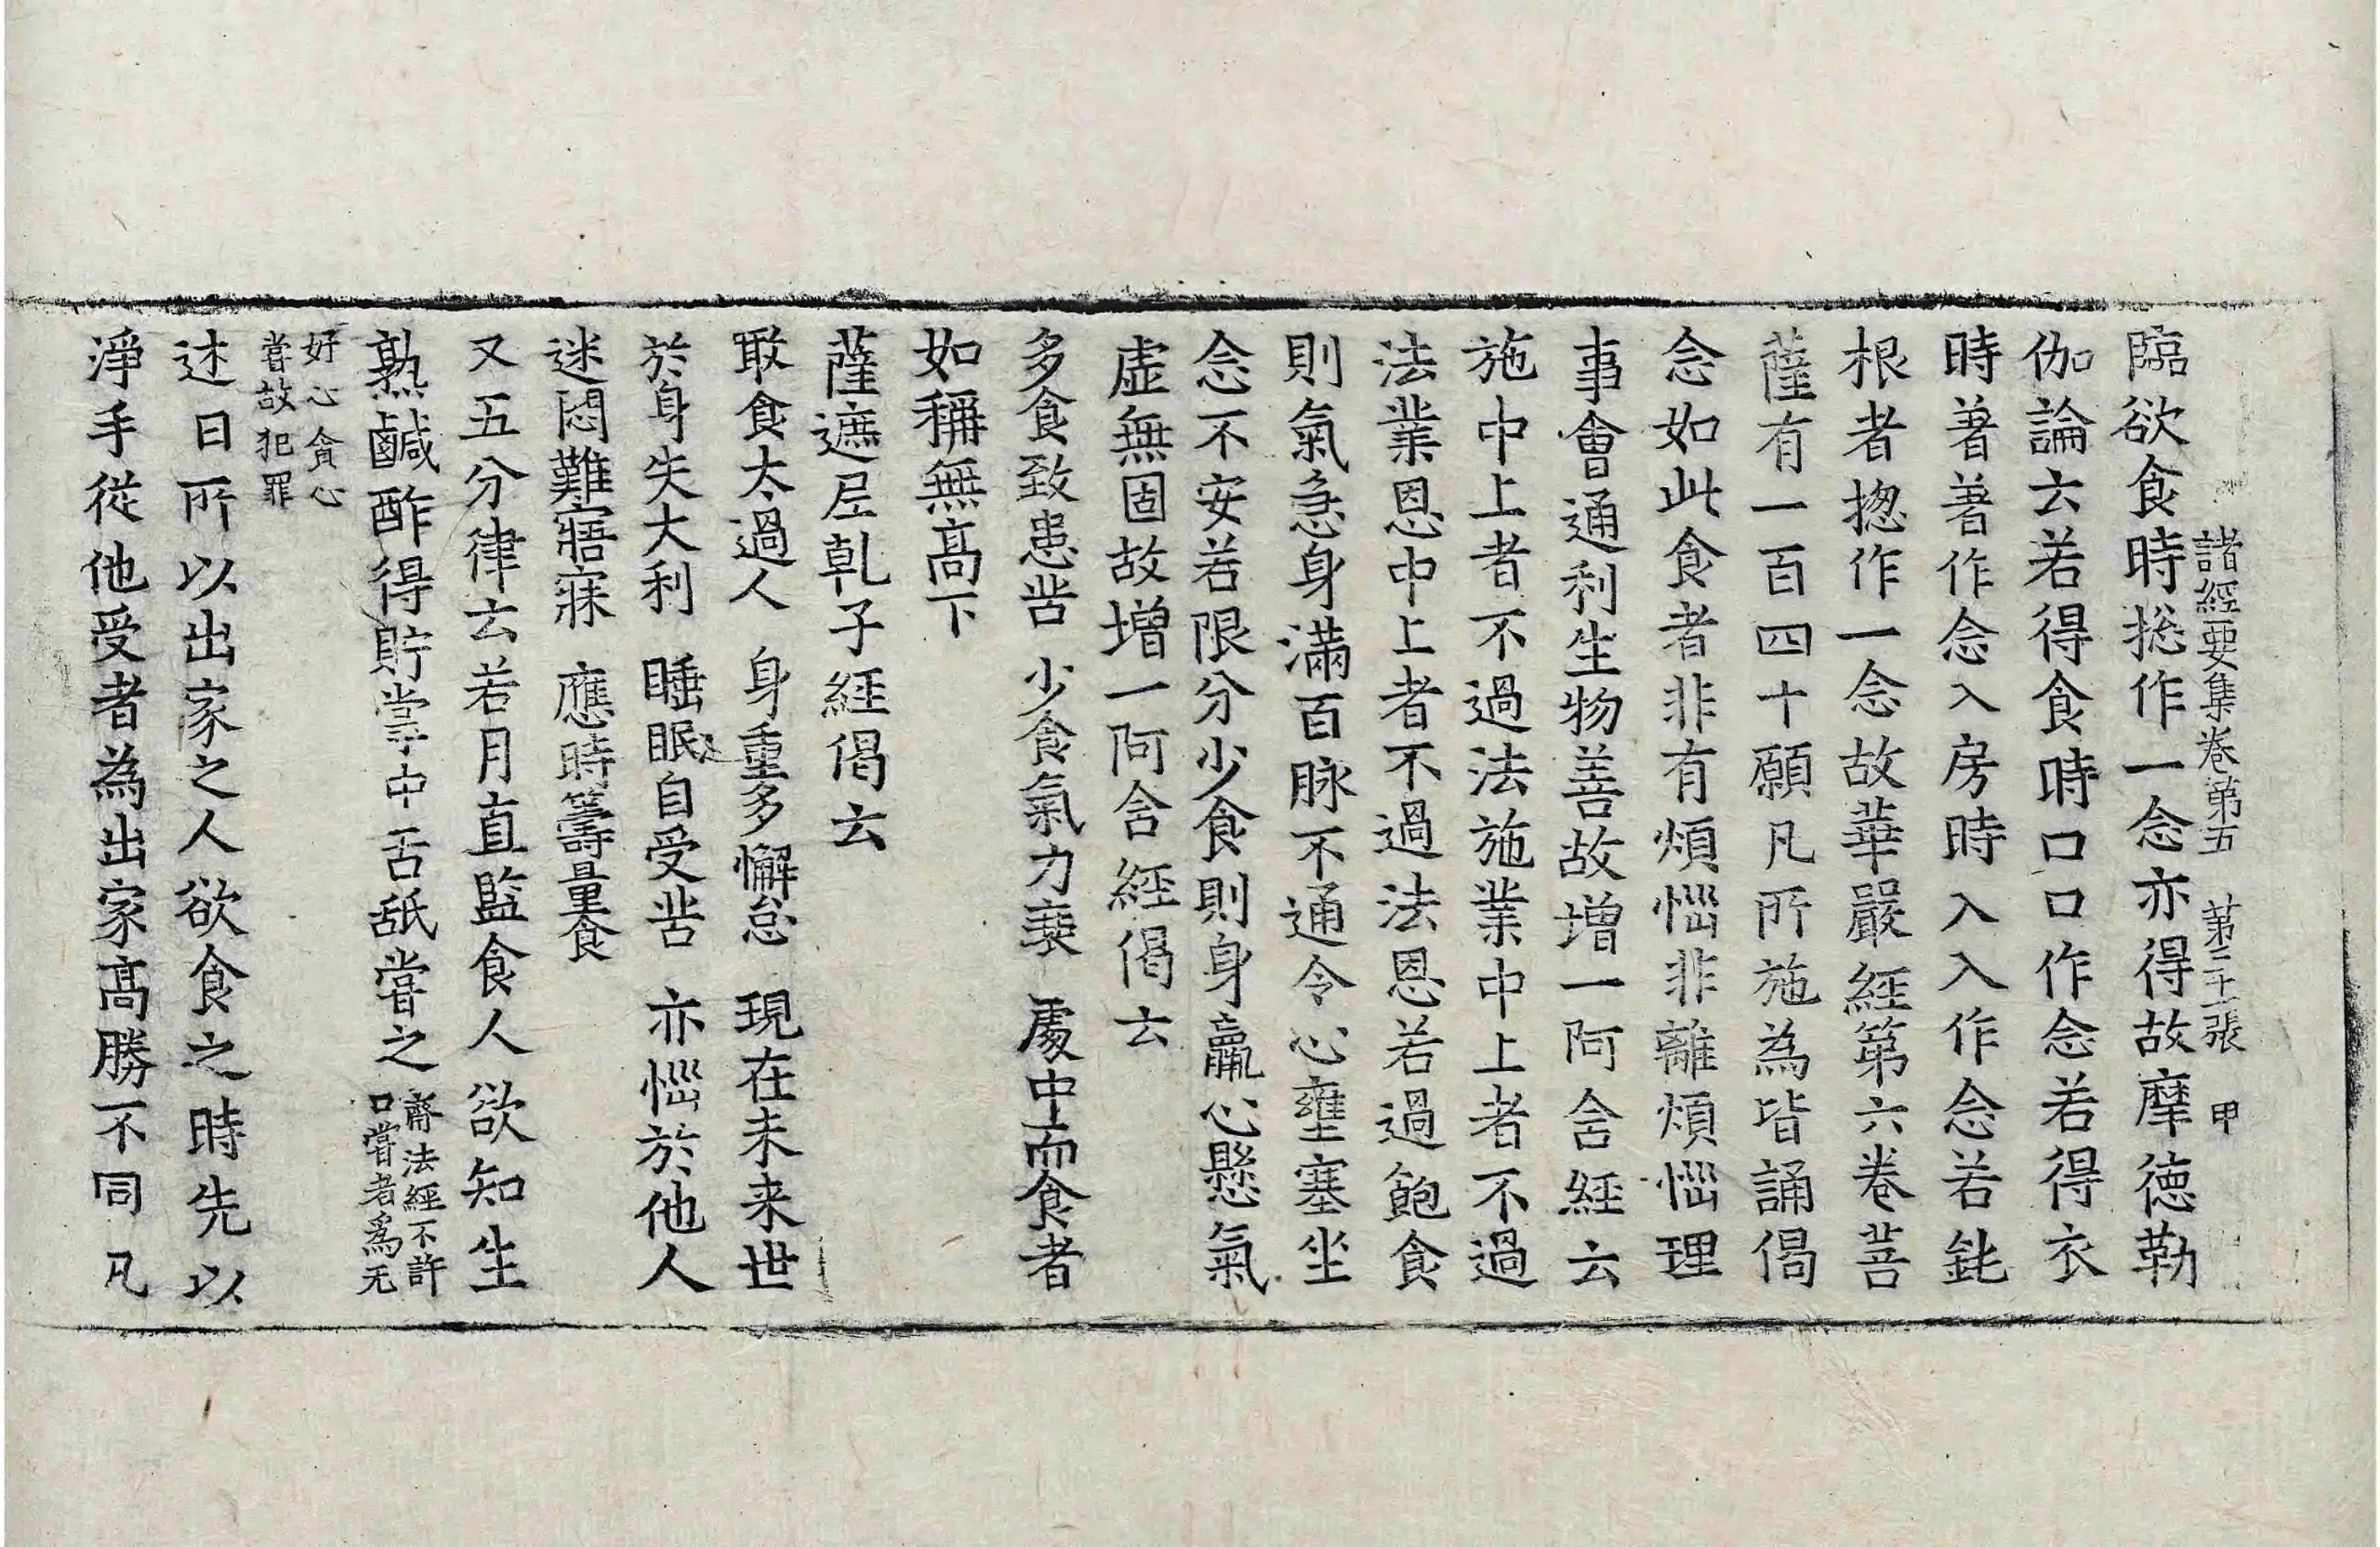 諸經要集卷第五 第二十張 甲
臨欲食時捴作一念亦得故摩德勒
伽論云若得食時口口作念若得衣
時著著作念入房時入入作念若鈍
根者揔作一念故華嚴經第六卷菩
薩有一百四十願凡所施為皆誦偈
念如此食者非有煩惱非離煩惱理
事會通利生物善故增一阿含經云
施中上者不過法施業中上者不過
法業恩中上者不過法恩若過飽食
則氣急身滿百脉不通令心壅塞坐
念不安若限分少食則身羸心懸氣
虛無固故增一阿含經偈云
多食致患苦 少食氣力衰 處中而食者
如稱無高下
薩遮尼乹子經偈云
噉食太過人 身重多懈怠 現在未来世
於身失大利 睡眠自受苦 亦惱於他人
迷悶難寤寐 應時籌量食
又五分律云若月直監食人欲知生
熟鹹酢得貯掌中舌舐嘗之齋法經不許
口嘗者爲无
好心貪心
嘗故犯罪
述曰所以出家之人欲食之時先以
淨手從他受者為出家高勝不同凡